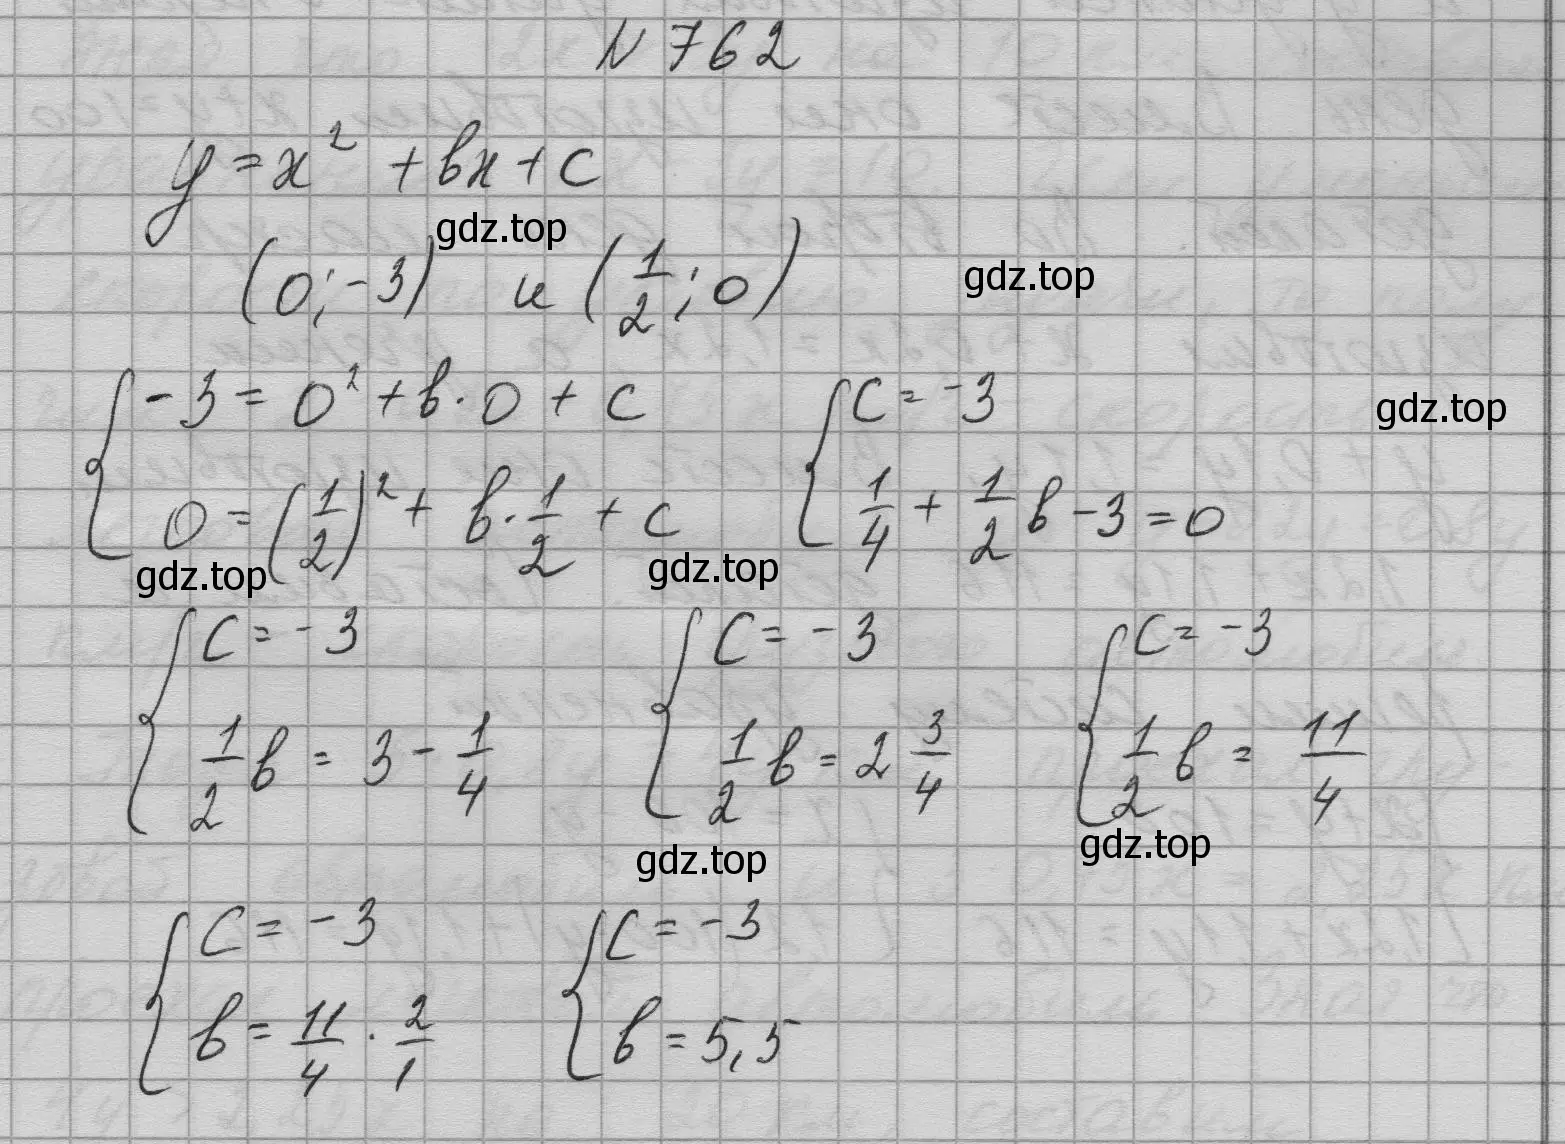 N 762
y = x² + bx + c
gdz.top
(0; -3) и (1/2; 0)
gdz.top
{ -3 = 0² + b · 0 + c
0 = (1/2)² + b · 1/2 + c
{ c = -3
1/4 + 1/2 b - 3 = 0
gdz.top
gdz.top
gdz.top
{ c = -3
1/2 b = 3 - 1/4
{ c = -3
1/2 b = 2 3/4
{ c = -3
1/2 b = 11/4
gdz.top
gdz.top
{ c = -3
b = 11/4 · 2/1
{ c = -3
b = 5,5